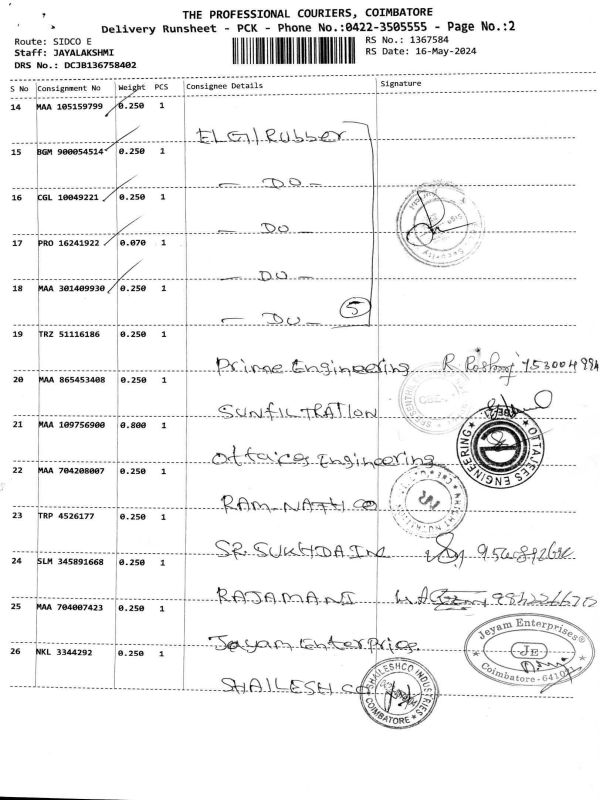 THE PROFESSIONAL COURIERS, COIMBATORE
Delivery Runsheet - PCK - Phone No.:0422-3505555 - Page No.:2
Route: SIDCO E
RS No.: 1367584
Staff: JAYALAKSHMI
RS Date: 16-May-2024
DRS No.: DCJB136758402
S No Consignment No Weight PCS Consignee Details Signature
14 MAA 105159799 0.250 1
ELGI/Rubber
15 BGM 900054514 0.250 1
- DO -
16 CGL 10049221 0.250 1
- DO -
17 PRO 16241922 0.070 1
- DO -
18 MAA 301409930 0.250 1
- DO - 5
19 TRZ 51116186 0.250 1
Prime Engineering R
20 MAA 865453408 0.250 1
SUNFILTRATION
21 MAA 109756900 0.800 1
Engineering
OTTAJEES ENGINEERING
22 MAA 704208007 0.250 1
RAM-NATH CO
23 TRP 4526177 0.250 1
SR.
24 SLM 345891668 0.250 1
RAJAMANI
25 MAA 704007423 0.250 1
Jeyam Enterprise
Jeyam Enterprises
JE
26 NKL 3344292 0.250 1
SHAILESH CO
SHAILESHCO INDUSTRIES
COIMBATORE